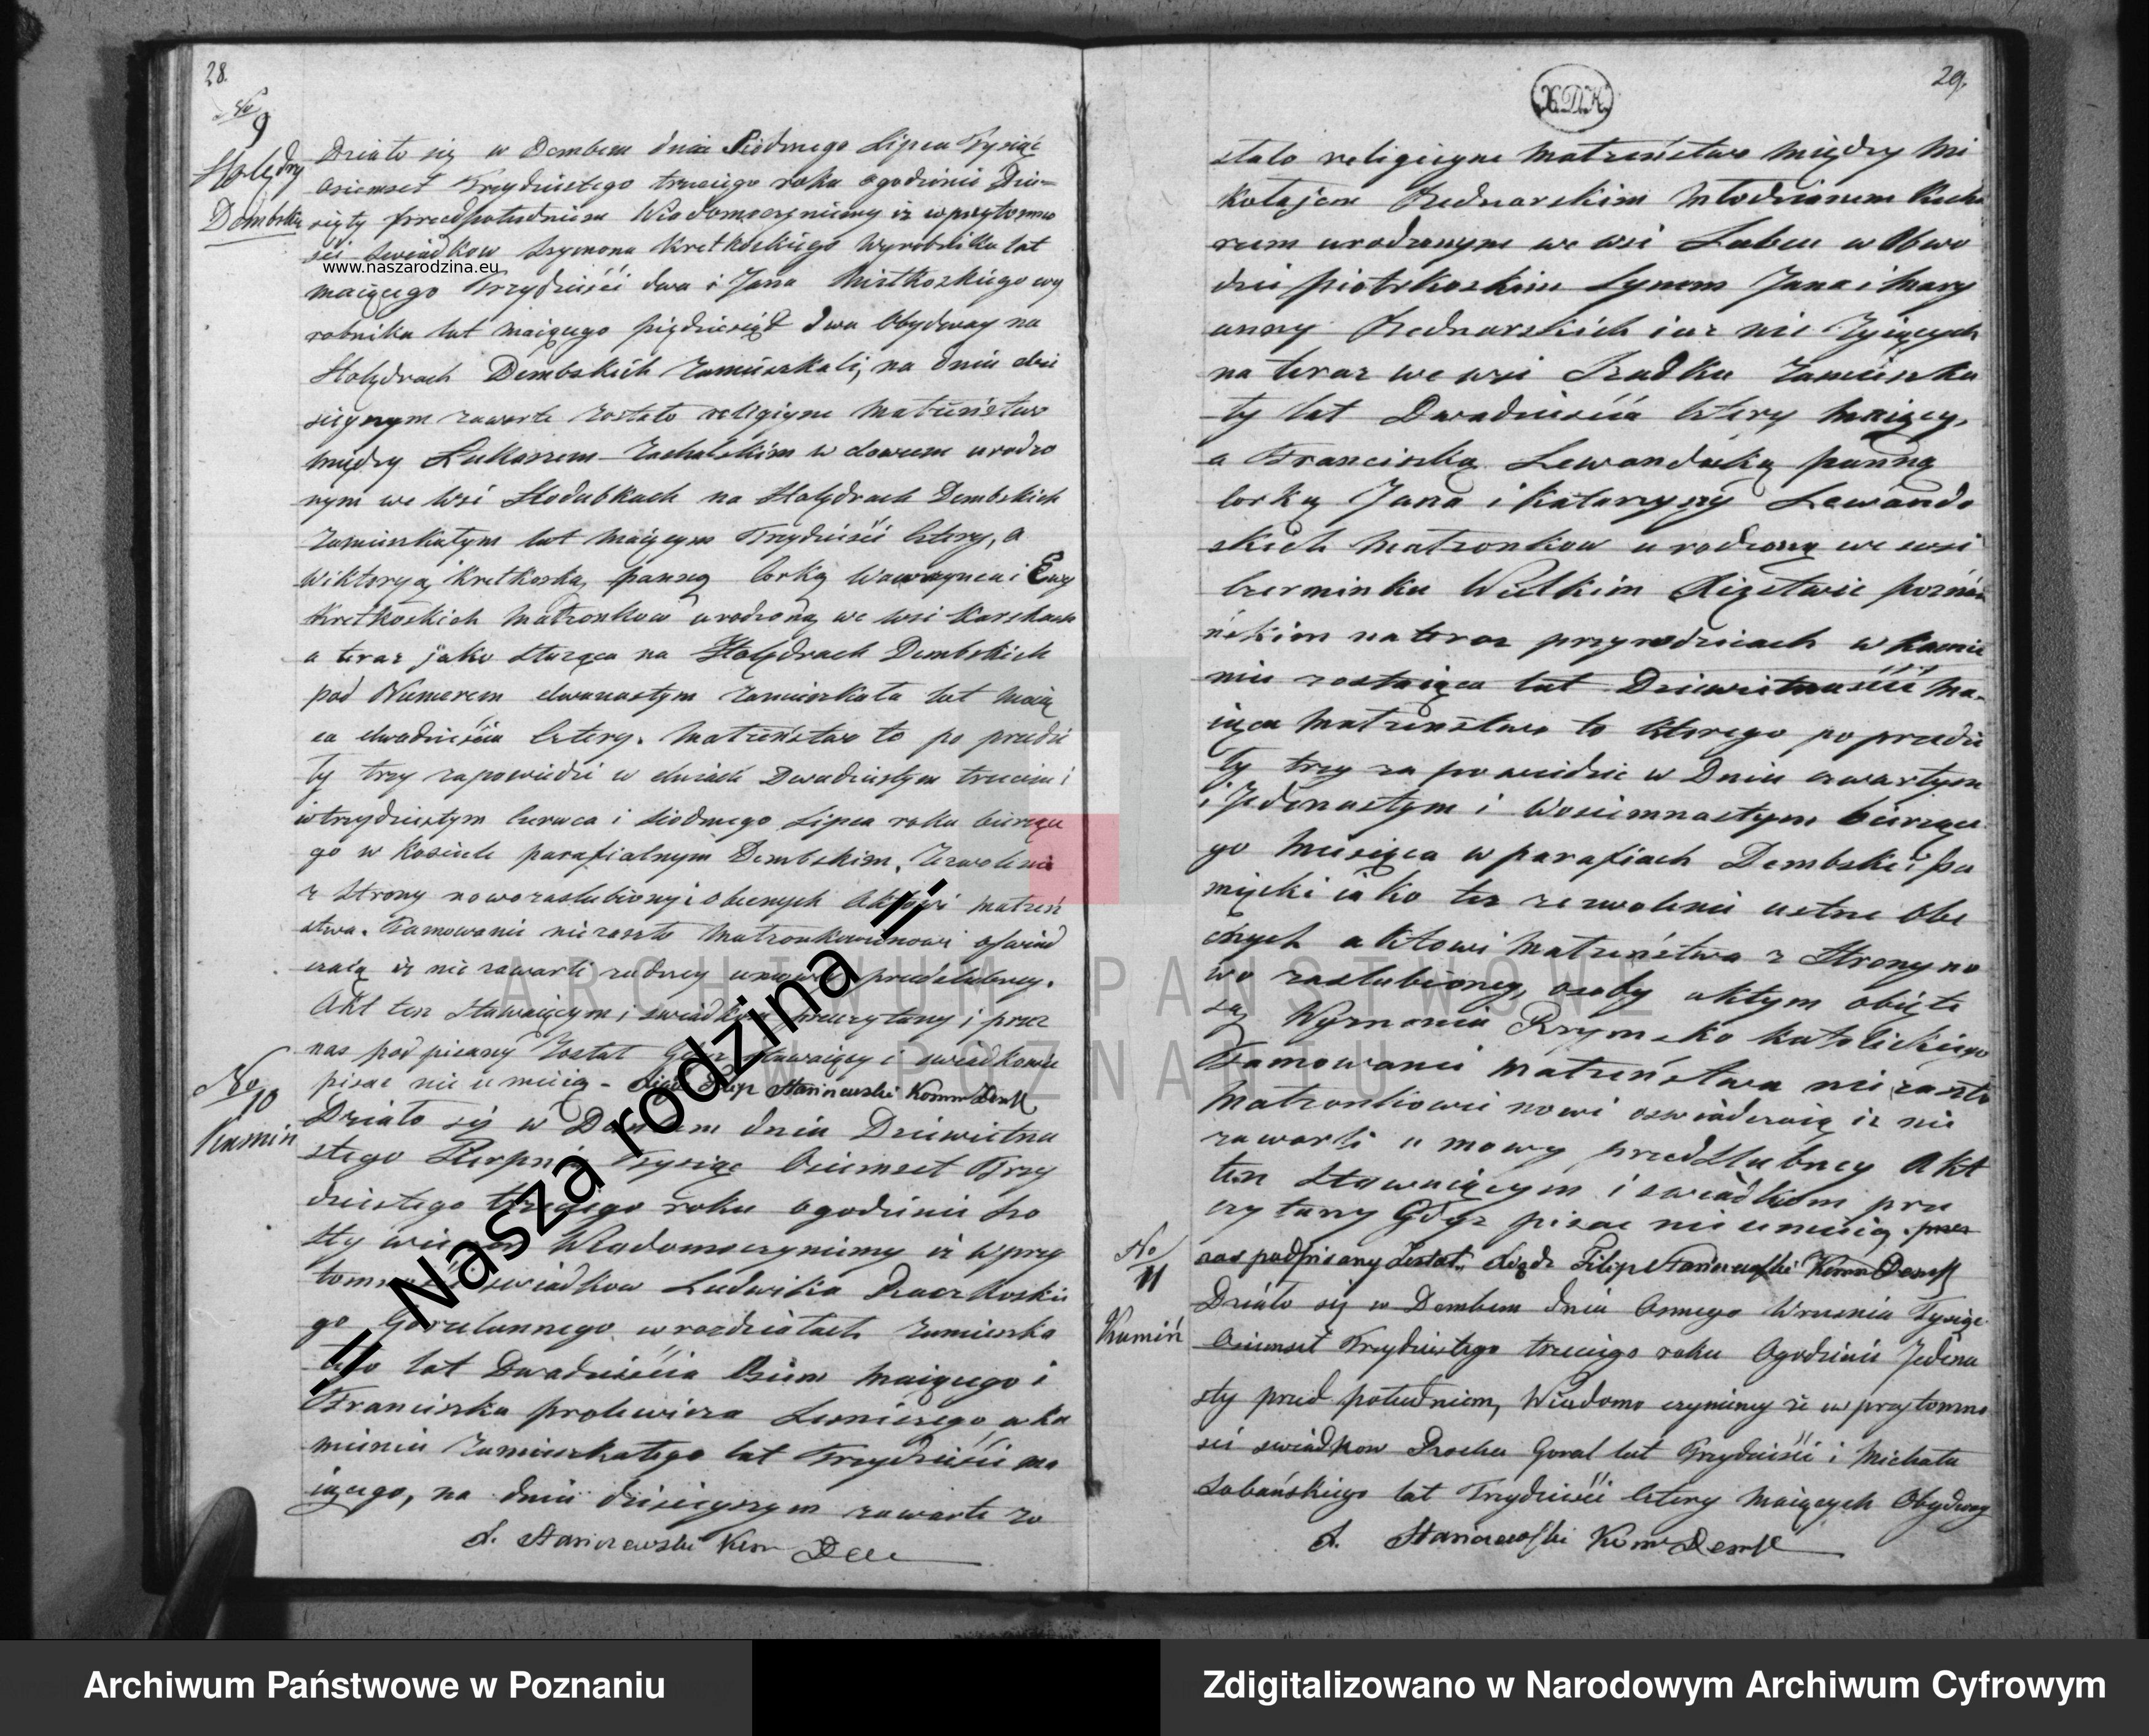 28.
No
9
Holędry
Dembskie
Działo się w Dembem dnia Siodmego Lipca Tysiąc
osiemset Trzydziestego trzeciego roku o godzinie Dzie-
siąty przedpołudniem Wiadomo czyniemy iż w przytomno
ści swiadkow Szymona Kretkoskiego wyrobnika lat
www.naszarodzina.eu
maiącego Trzydzieści dwa i Jana Mistkoskiego wy
robnika lat maiącego pięcdziesiąt dwa Obydway na
Holędrach Dembskich zamieszkali, na dniu dzi
sieyszym zawarte zostało religiyne małżeństwo
między Łukaszem Zachalskim wdowcem urodzo
nym we wsi na Holędrach Dembskich
zamieszkałym lat maiącym Trzydzieści cztery, a
Wiktoryią Kretkoską panną corką Wawrzynca i Ewy
Kretkoskich małżonkow urodzoną we wsi
a teraz jako służąca na Holędrach Dembskich
pod Numerem dwunastym zamieszkała lat maią
ca dwadzieścia cztery. Małżeństwo to po przedzi
ły trzy zapowiedzi w dniach Dwudziestym trzecim i
i trzydziestym Czerwca i siodmego Lipca roku bieżące
go w kosciele parafialnym Dembskim, Zezwolenie
z strony nowozaslubiony i obecnych Aktowi małżeń
stwa. Tamowanie nie zaszło Małżonkowie nowi oswiad
czaią iż nie zawarli żadney umowy przedslubney.
Akt ten stawaiącym i swiadkom przeczytany i przez
nas podpisany został Gdyż stawaiący i swiadkowie
pisac nie umieią - Xiądz Filip Staniszewski Komm Demb
No
10
Kamin
Działo się w Dembem dnia Dziewietna
stego Sierpnia Tysiąc Osiemset Trzy
dziestego trzeciego roku o godzinie szo
sty wieczor Wiadomo czyniemy iż w przy
tomności swiadkow Ludwika Raczkoskie
go Gorzelannego w rozdziałach zamieszka
łego lat Dwadzieścia Osiem maiącego i
Franciszka prolewicza Lesniczego w Ka
mieniu zamieszkałego lat Trzydzieści ma
iącego, na dniu dzisieyszym zawarte zo
X. Staniszewski Kom
29.
X.D.K.
stało religiyne małżeństwo między Mi
kołajem Bednarskim Młodzianem Kucha
rzem urodzonym we wsi w Obwo
dzie piotrkoskim Synem Jana i Mary
anny Bednarskich iuz nie żyiących
na teraz we wsi zamieszka
ły lat Dwadzieścia cztery maiący,
a Franciszką Lewandoską panną
corką Jana i Katarzyny Lewando
skich Małżonkow urodzoną we wsi
Czerminku Wielkim Xięstwie poznań
ńskim na teraz przy rodzicach w Kamie
niu zostaiąca lat Dziewietnaście ma-
iąca Małżeństwo to ktorego poprzedzi
ły trzy zapowiedzie w Dniu czwartym
i Jedenastym i w osiemnastym bieżące
go Miesiąca w parafiach Dembski i pa
mięcki iako też zezwolenie ustne obe
cnych aktowi małżeństwa z Strony no
wo zaslubioney, osoby aktym obięte
są Wyznania Rzymsko katolickiego
Tamowanie małżeństwa nie zaszło
małżonkowie nowi oswiadczaią iż nie
zawarli umowy przedslubney Akt
ten stawaiącym i swiadkom prze
czytany Gdyż pisac nie umieią. przez
nas podpisany został. Xiądz Filip Staniszewski Komm Demb
No
11
Kamiń
Działo się w Dembem dnia Osmego Wrzesnia Tysiąc
Osiemset Trzydziestego trzeciego roku O godzinie Jedena
sty przed południem, Wiadomo czyniemy iż w przytomno
sci swiadkow Rocha Goral lat Trzydzieści i Michała
Labańskiego lat Trzydzieści cztery maiących Obydway
X. Staniszewski Kom Demb
ARCHIWUM PAŃSTWOWE
W POZNANIU
|| Nasza rodzina ||
Archiwum Państwowe w Poznaniu
Zdigitalizowano w Narodowym Archiwum Cyfrowym